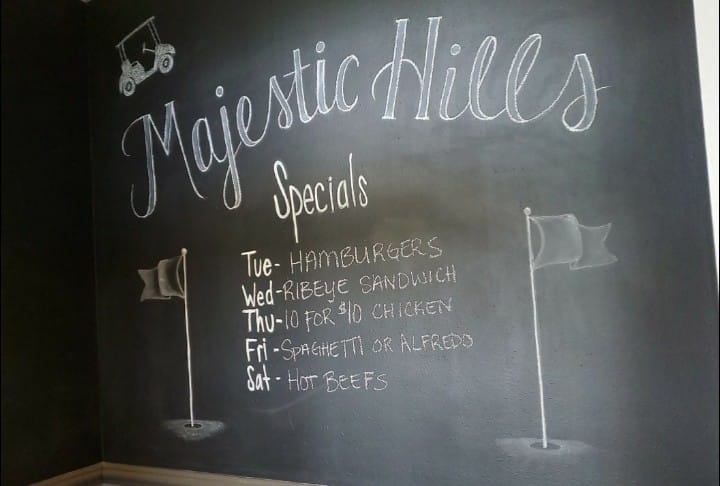 Majestic Hills
Specials
Tue- HAMBURGERS
Wed-RIBEYE SANDWICH
Thu-10 FOR $10 CHICKEN
Fri-SPAGHETTI OR ALFREDO
Sat- HOT BEEFS